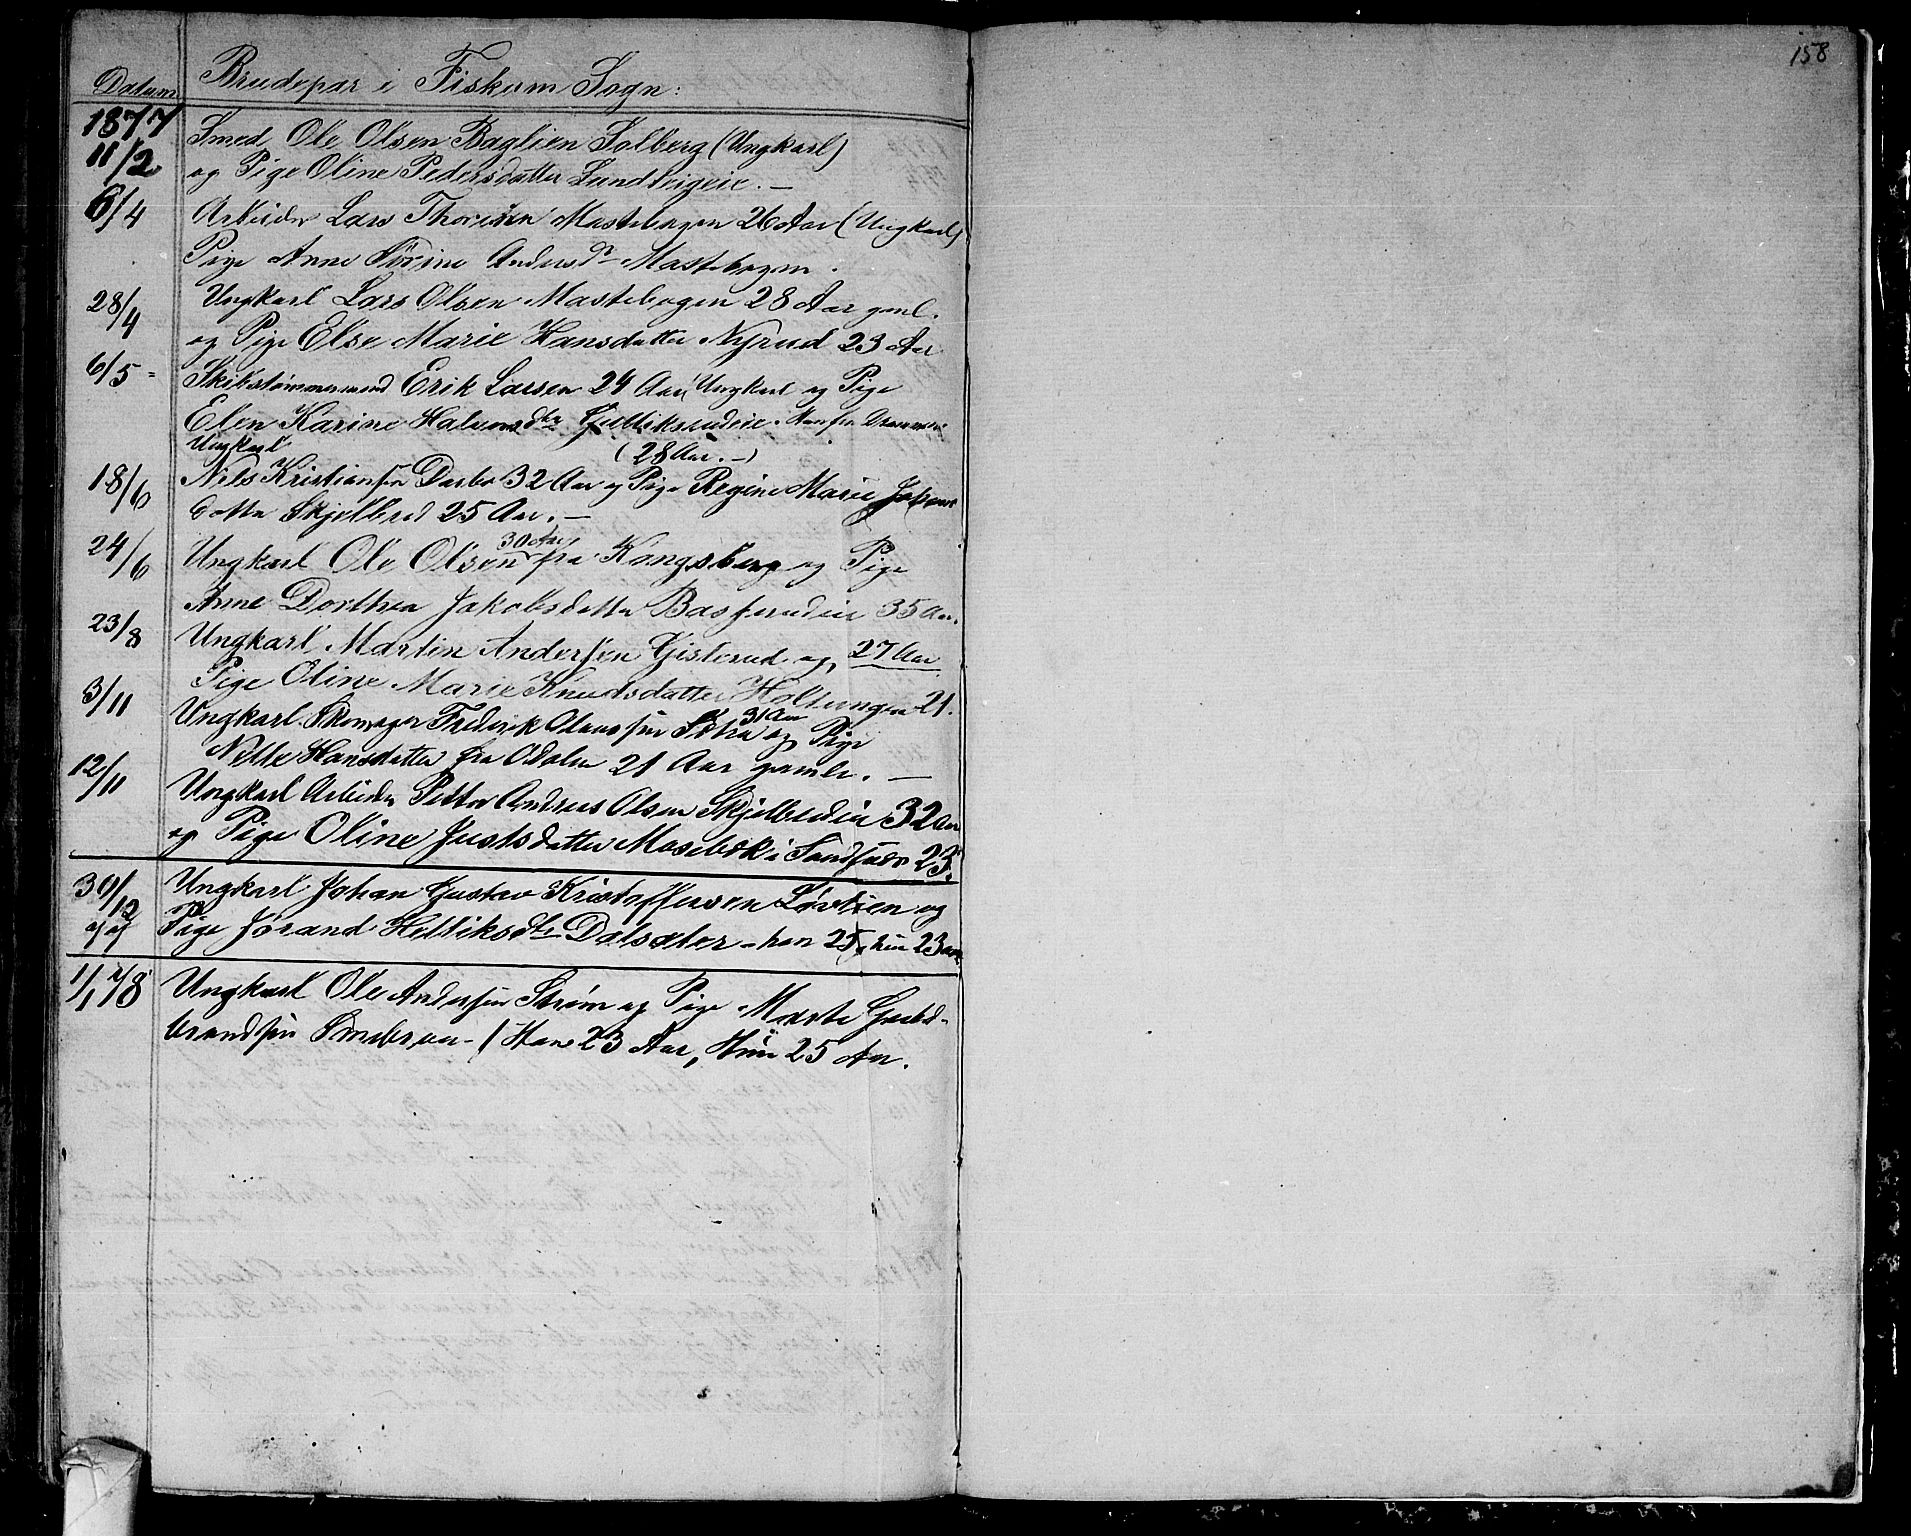 158
Datum Brudepar i Fiskum Sogn:
1877
11/2 Smed Ole Olsen Baglien Solberg (Ungkarl)
og Pige Oline Pedersdatter
6/4 Arbeider Lars Mastebogen 26 Aar (Ungkarl)
Pige Anne Sørine Andersdr Mastebogen.
28/4 Ungkarl Lars Olsen Mastebogen 28 Aar gml.
og Pige Else Marie Hansdatter Nyrud 23 Aar
6/5 - Skibstømmermand Erik Larsen 24 Aar, Ungkarl og Pige
Elen Karine Gulliksrudeie. Han fra Drammen
Ungkarl (28 Aar. -)
18/6 Nils Kristiansen Darbo 32 Aar og Pige Regine Marie Johans
datter Skjelbred 25 Aar. -
30 Aar
24/6 Ungkarl Ole Olsen fra Kongsberg og Pige
Anne Dorthea Jakobsdatter 35 Aar.
23/8 Ungkarl Martin Andersen Gisterud og 27 Aar
Pige Oline Marie Knudsdatter Holtungen 21.
31 Aar
3/11 Ungkarl Skomager Frederik og Pige
Hansdatter fra Odalen 21 Aar gamle. -
12/11 Ungkarl Arbeider Petter Andreas Olsen 32 Aar
og Pige Oline Justsdatter i Sandsvær 23.
30/12 Ungkarl Johan Gustav Kristoffersen og
Pige Jørand Helliksdtr Dalsæter - han 25, hun 23 Aar
1/1 78 Ungkarl Ole Andersen Strøm og Pige Marte Guld-
brandsen - (Han 23 Aar, Hun 25 Aar.